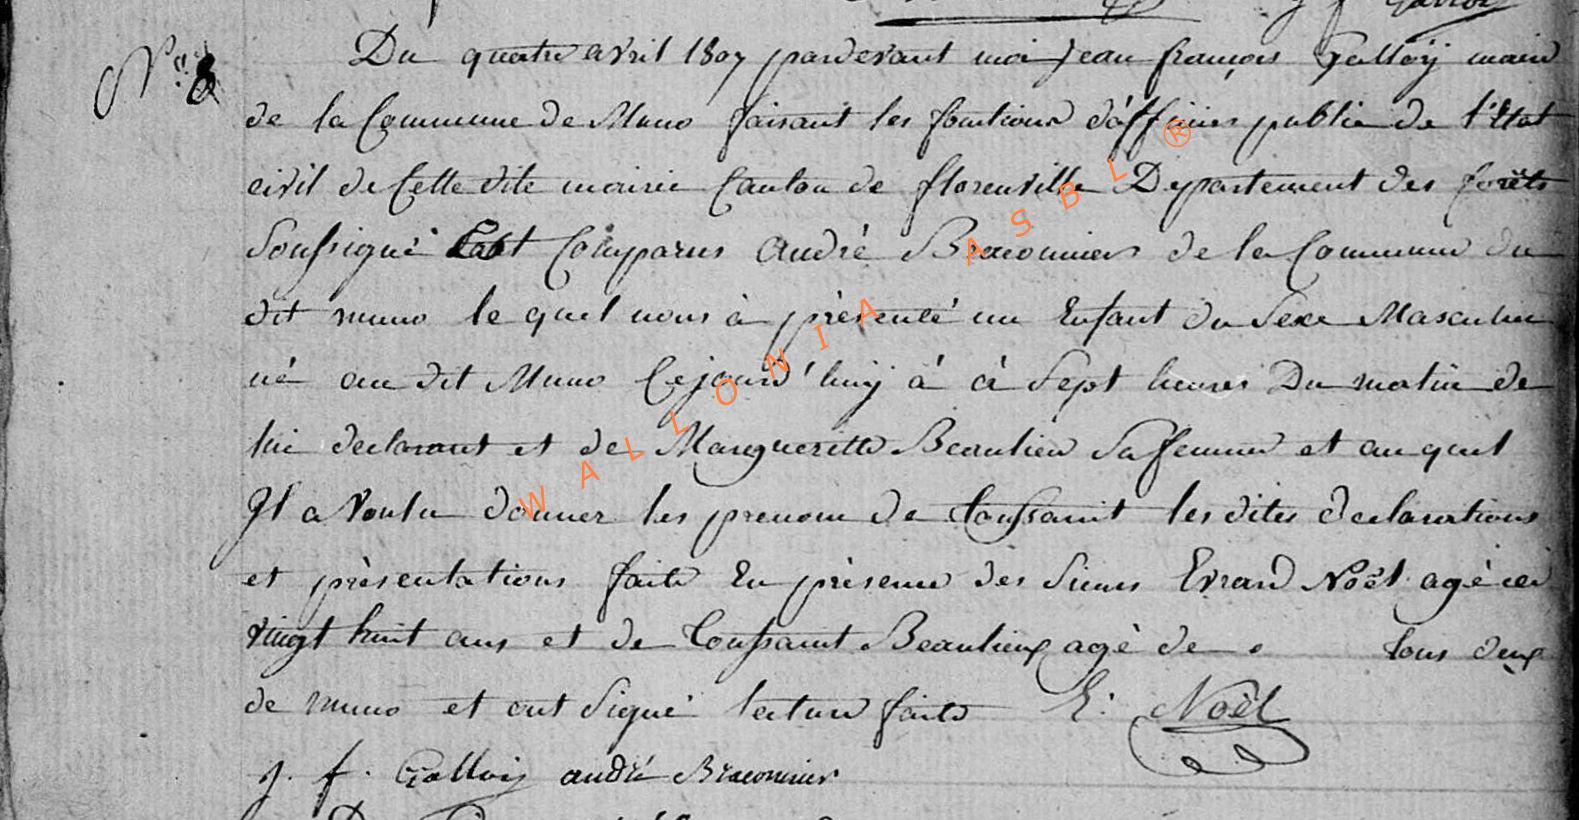 N.º 8
Du quatre avril 1807 pardevant moi Jean françois Galloÿ maire
de la Commune de Muno faisant les fonctions d'officier public de l'Etat
civil de Celle dite mairie Canton de florenville Departement des forêts
Soussigné Est Comparus André Braconnier de la Commune du
dit muno le quel nous à présenté un Enfant du Sexe Masculin
né au dit Muno Cejourd'huij à à Sept heures Du matin de
lui declarant et de Margueritte Beaulieu Sa femme et au quel
Il a Voulu donner les prenom de toussaint les dites declarations
et présentations faite En présence des Sieurs Evrard Noël agé de
vingt huit ans et de Toussaint Beaulieux agé de tous deux
de muno et ont Signé lecture faite E: Noël
j. f. Galloij andré Braconnier
WALLONIA ASBL ®